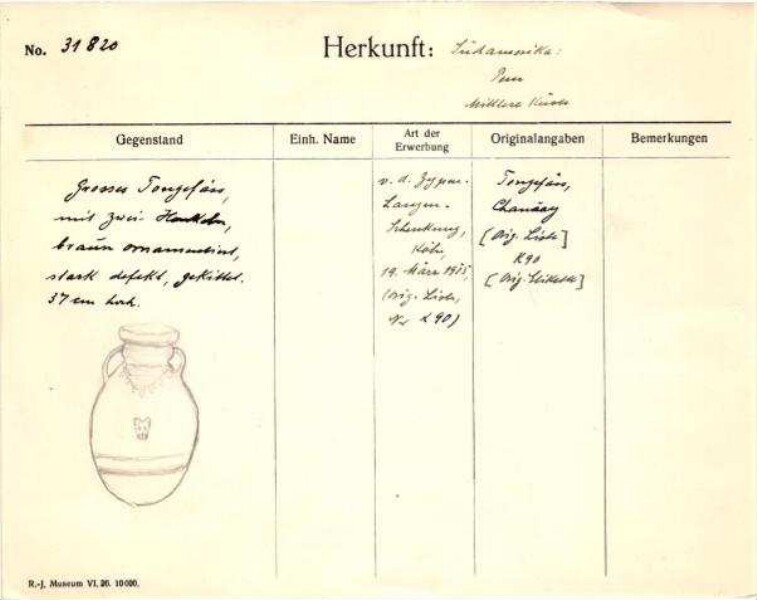 No. 31820
Herkunft: Südamerika:
Peru
Mittlere Küste
Gegenstand
Einh. Name
Art der
Erwerbung
Originalangaben
Bemerkungen
Grosses Tongefäss,
mit zwei Henkeln,
braun ornamentiert,
stark defekt, gekittet.
37 cm hoch.
v. d. Zypen-
Langen-
Schenkung,
Köln,
19. März
(Orig. Liste,
Nr 90)
Tongefäss,
Chancay
[Orig. Liste]
K90
[Orig. Etikette]
R.-J. Museum VI. 10000.